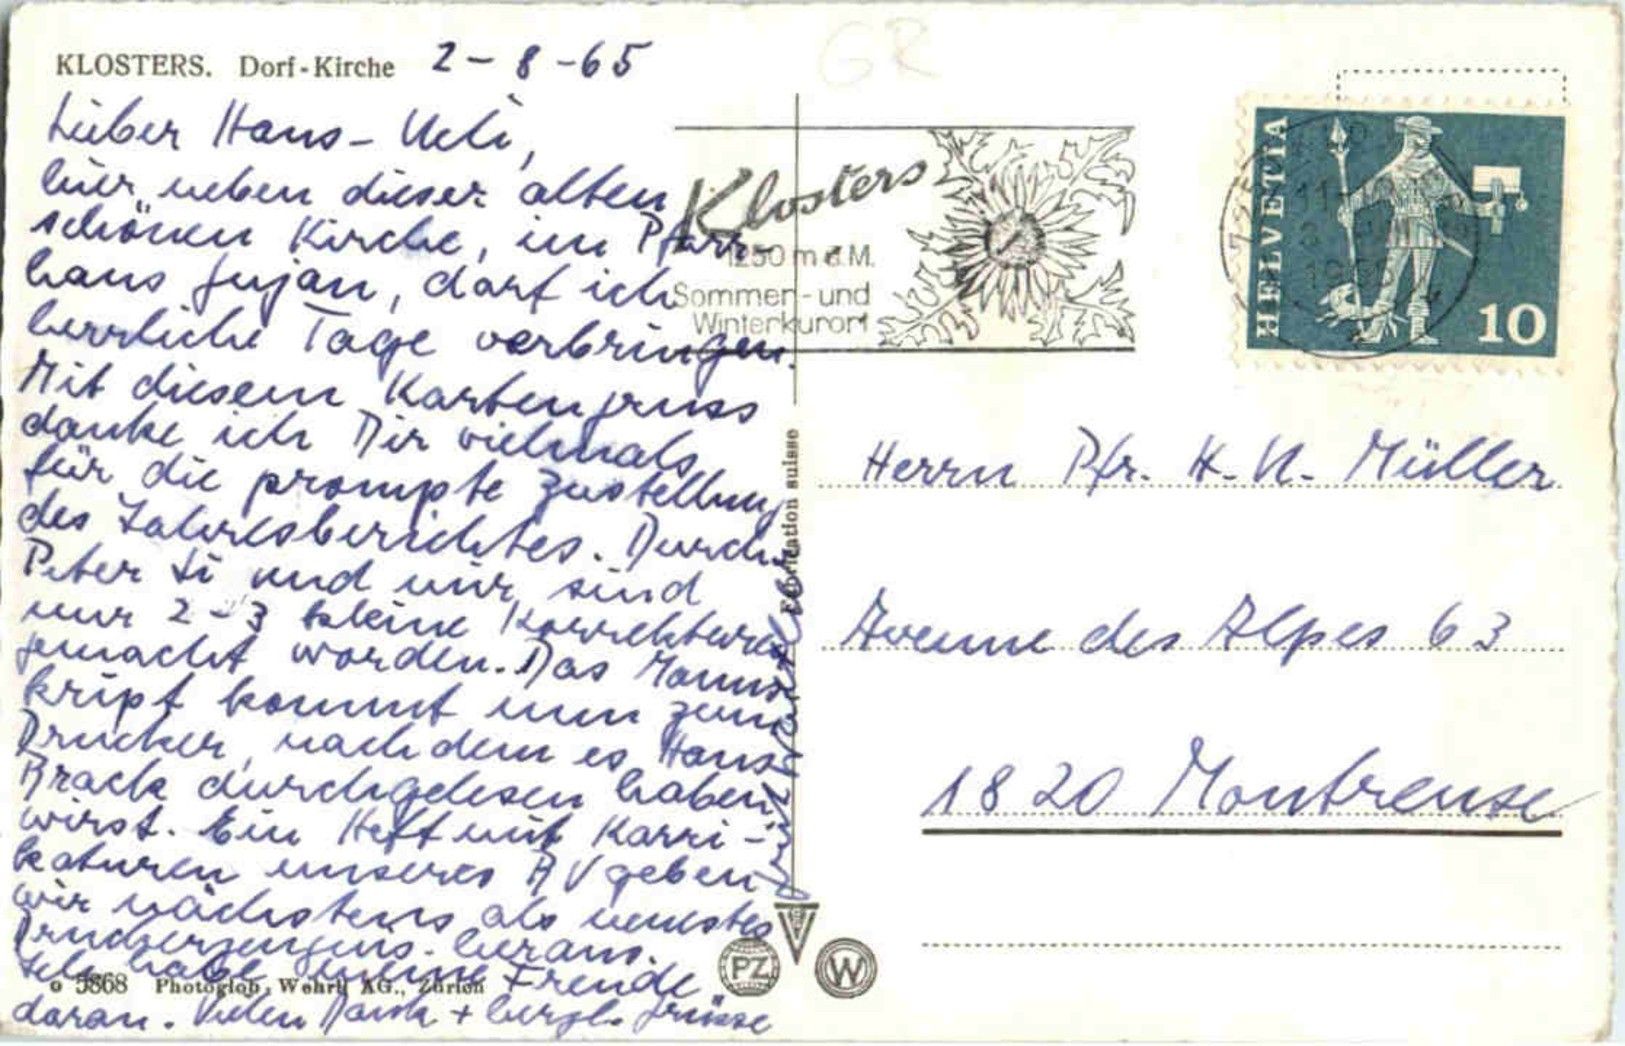 KLOSTERS. Dorf-Kirche 2-8-65
Lieber Hans-Ueli,
hier neben dieser alten
schönen Kirche, im Pfarr-
haus Jujan, darf ich
herrliche Tage verbringen.
Mit diesem Kartengruss
danke ich Dir vielmals
für die prompte Zustellung
des Jahresberichtes. Durch
Peter und mir sind
nur 2-3 kleine Korrekturen
gemacht worden. Das Manus-
kript kommt nun zum
Drucker, nachdem es Hans
Brack durchgelesen haben
wirst. Ein Heft mit Karri-
katuren unseres BV geben
wir nächstens als neustes
Druckerzeugnis heraus.
Ich habe meine Freude
daran. Vielen Dank + herzl. Grüsse
Klosters
1250 m ü.M.
Sommer- und
Winterkurort
HELVETIA
10
Herrn Pfr. H.U. Müller
Avenue des Alpes 63
1820 Montreuse
Fabrication suisse
PZ
W
5868 Photoglob, Wehrli AG., Zürich
GR